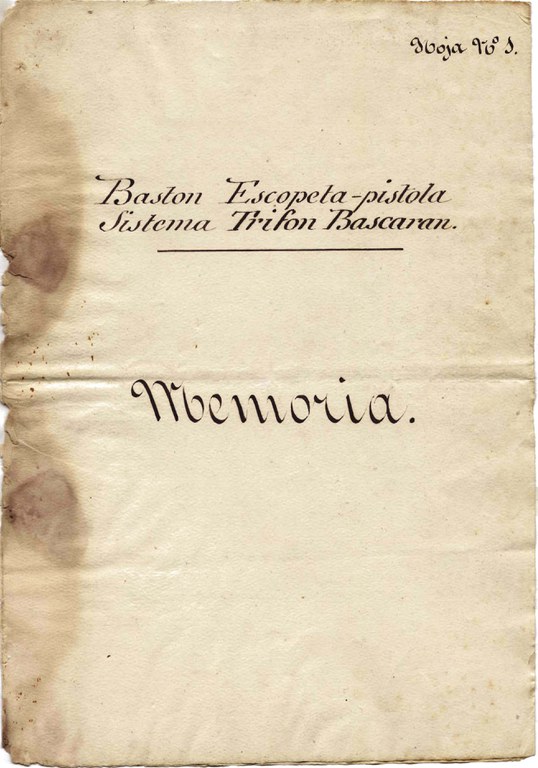 Hoja Nº 1.
Baston Escopeta-pistola
Sistema Trifon Bascaran.
Memoria.